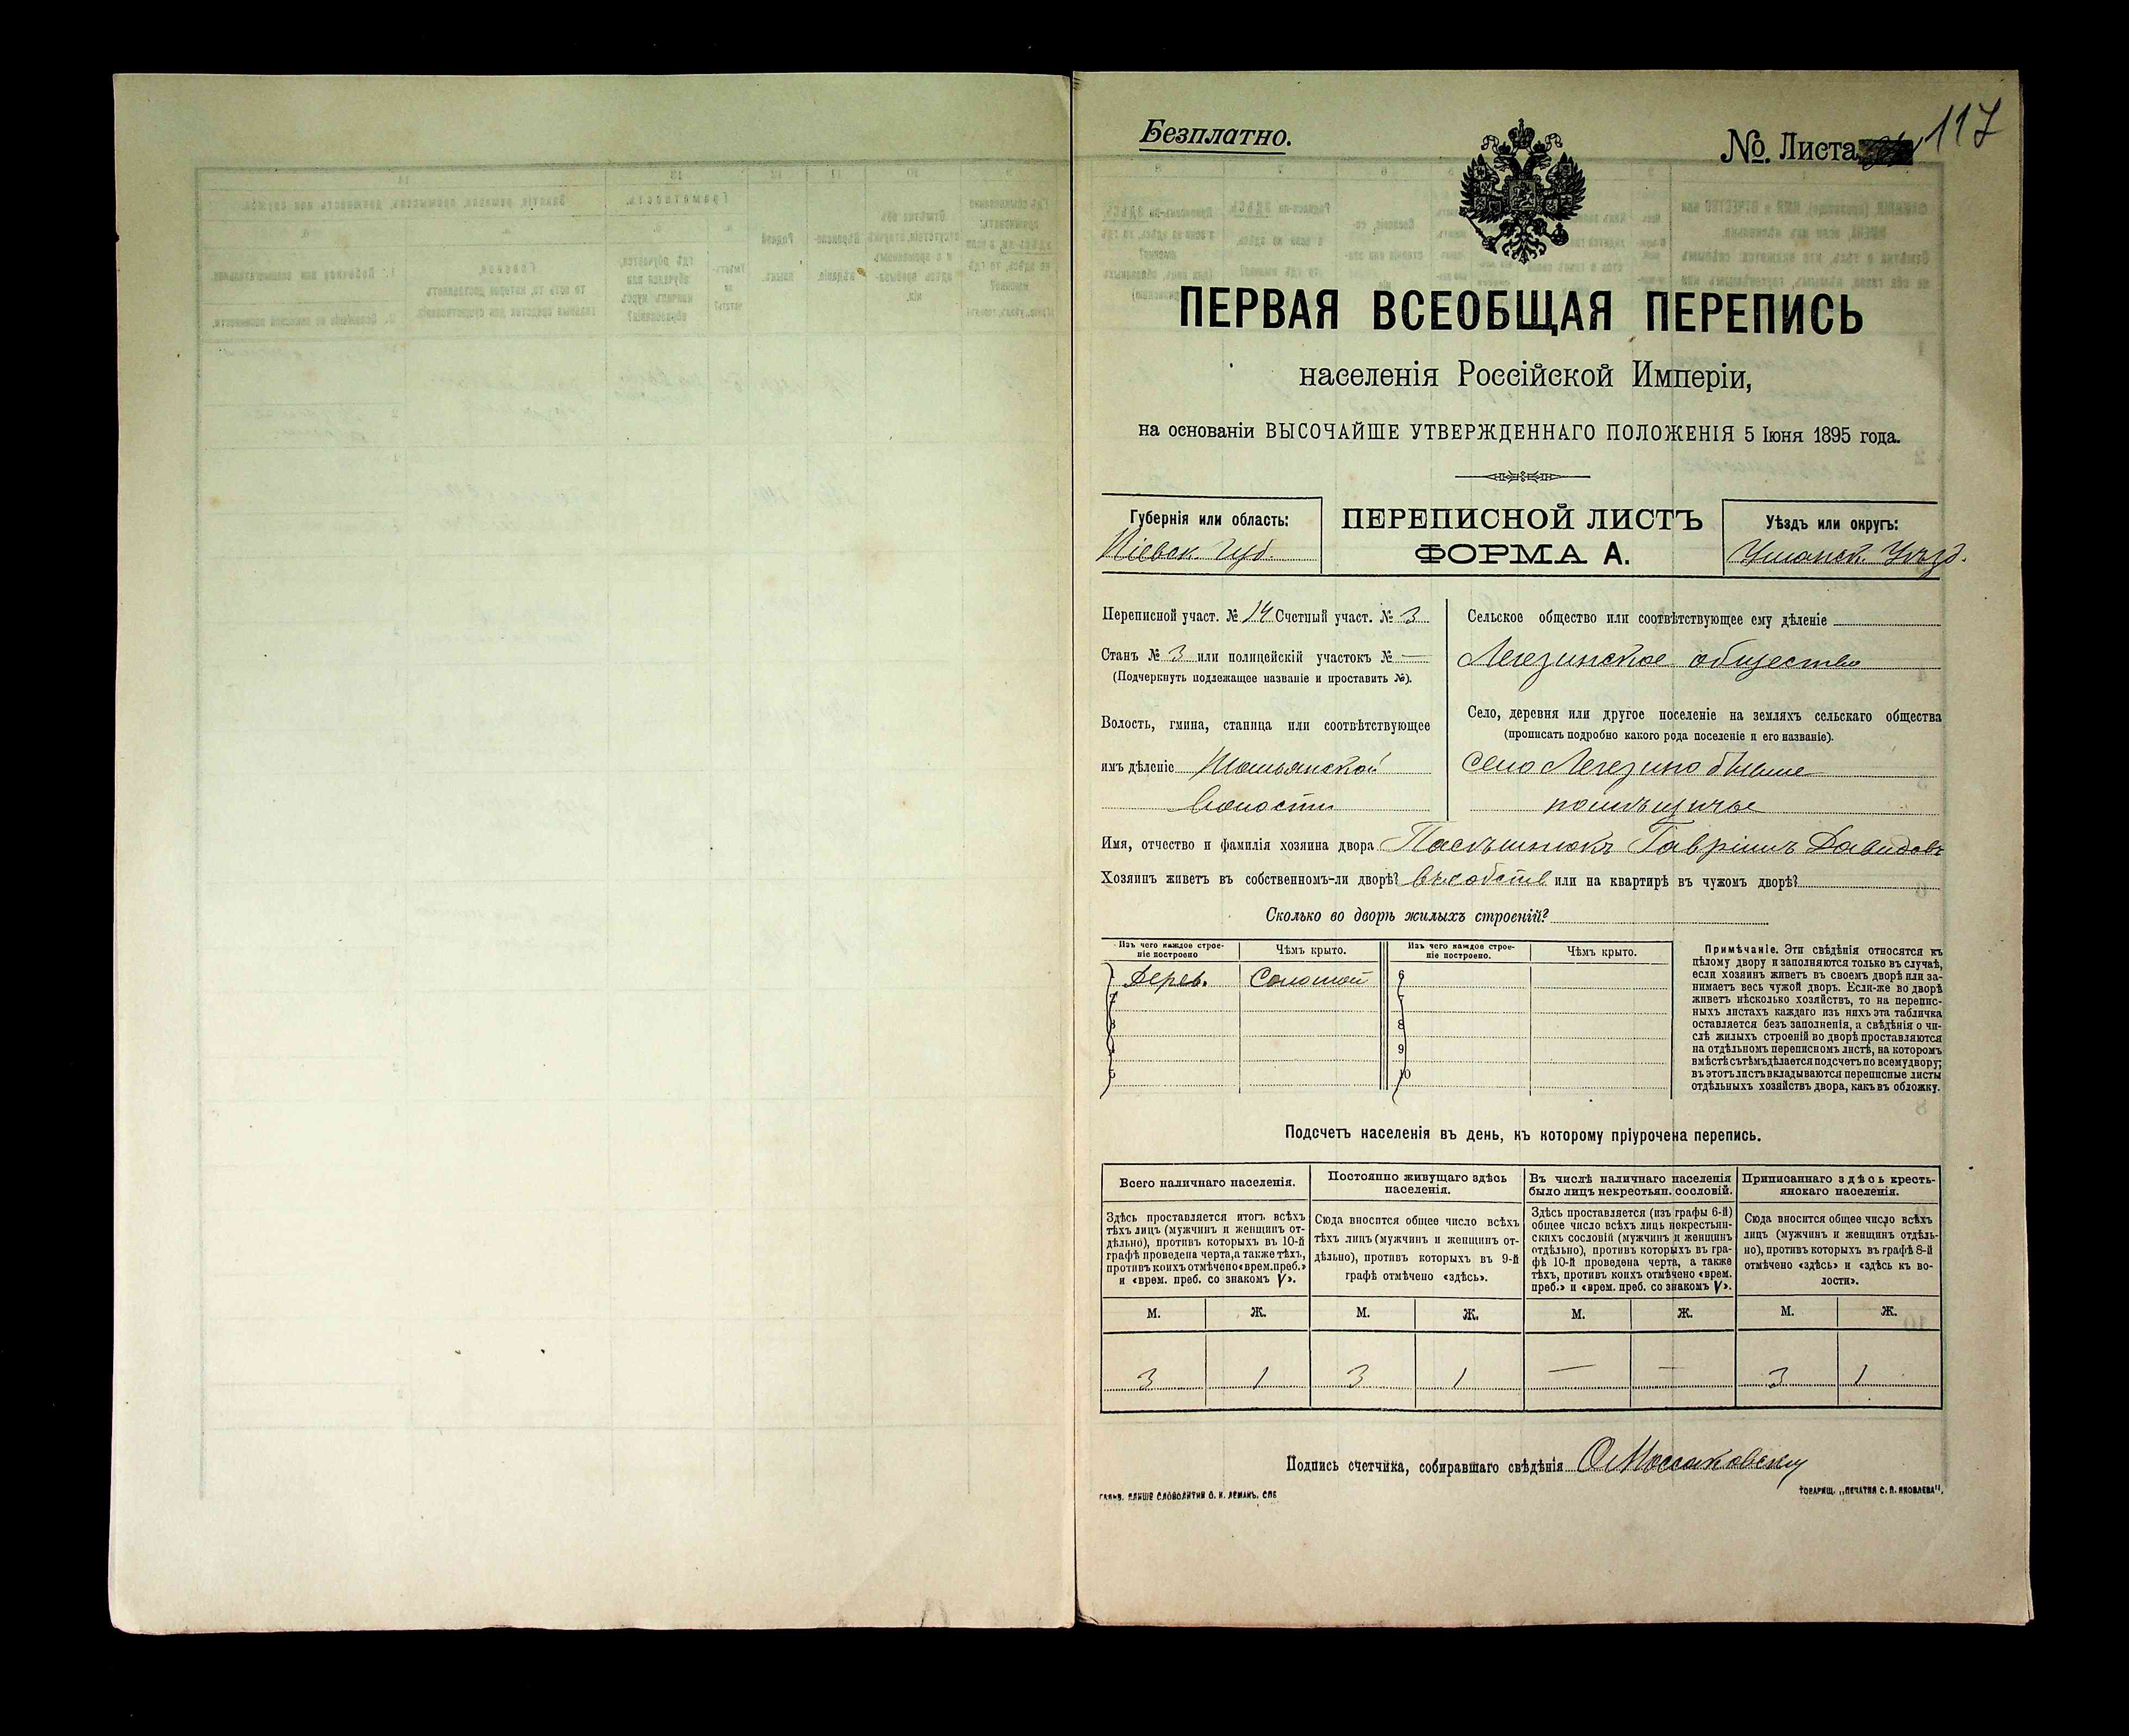 Безплатно.
№. Листа 117
ПЕРВАЯ ВСЕОБЩАЯ ПЕРЕПИСЬ
населенія Россійской Имперіи,
на основаніи ВЫСОЧАЙШЕ УТВЕРЖДЕННАГО ПОЛОЖЕНІЯ 5 Іюня 1895 года.
Губернія или область:
Кіевск. Губ.
ПЕРЕПИСНОЙ ЛИСТЪ
ФОРМА А.
Уѣздъ или округъ:
Уманск. Уѣзд.
Переписной участ. № 14 Счетный участ. № 3
Станъ № 3 или полицейскій участокъ № —
(Подчеркнуть подлежащее названіе и проставить №).
Волость, гмина, станица или соотвѣтствующее
имъ дѣленіе
Волости
Сельское общество или соотвѣтствующее ему дѣленіе
Легезинское общество
Село, деревня или другое поселеніе на земляхъ сельскаго общества
(прописать подробно какого рода поселеніе и его названіе).
село Легезино бывше
помѣщичье
Имя, отчество и фамилія хозяина двора Пасѣшнюкъ Гавріилъ Давидовъ
Хозяинъ живетъ въ собственномъ-ли дворѣ? въ собств или на квартирѣ въ чужомъ дворѣ?
Сколько во дворѣ жилыхъ строеній?
Изъ чего каждое строе-
ніе построено
Чѣмъ крыто.
Изъ чего каждое строе-
ніе построено.
Чѣмъ крыто.
1 Дерев. Соломой 6
2 7
3 8
4 9
5 10
Примѣчаніе. Эти свѣдѣнія относятся къ
цѣлому двору и заполняются только въ случаѣ,
если хозяинъ живетъ въ своемъ дворѣ или за-
нимаетъ весь чужой дворъ. Если-же во дворѣ
живетъ нѣсколько хозяйствъ, то на перепис-
ныхъ листахъ каждаго изъ нихъ эта табличка
оставляется безъ заполненія, а свѣдѣнія о чи-
слѣ жилыхъ строеній во дворѣ проставляются
на отдѣльномъ переписномъ листѣ, на которомъ
вмѣстѣ съ тѣмъ дѣлается подсчетъ по всему двору;
въ этотъ листъ вкладываются переписные листы
отдѣльныхъ хозяйствъ двора, какъ въ обложку.
Подсчетъ населенія въ день, къ которому пріурочена перепись.
Всего наличнаго населенія.
Здѣсь проставляется итогъ всѣхъ
тѣхъ лицъ (мужчинъ и женщинъ от-
дѣльно), противъ которыхъ въ 10-й
графѣ проведена черта, а также тѣхъ,
противъ коихъ отмѣчено «врем. преб.»
и «врем. преб. со знакомъ V».
Постоянно живущаго здѣсь
населенія.
Сюда вносится общее число всѣхъ
тѣхъ лицъ (мужчинъ и женщинъ от-
дѣльно), противъ которыхъ въ 9-й
графѣ отмѣчено «здѣсь».
Въ числѣ наличнаго населенія
было лицъ некрестьян. сословій.
Здѣсь проставляется (изъ графы 6-й)
общее число всѣхъ лицъ некрестьян-
скихъ сословій (мужчинъ и женщинъ
отдѣльно), противъ которыхъ въ гра-
фѣ 10-й проведена черта, а также
тѣхъ, противъ коихъ отмѣчено «врем.
преб.» и «врем. преб. со знакомъ V».
Приписаннаго здѣсь кресть-
янскаго населенія.
Сюда вносится общее число всѣхъ
лицъ (мужчинъ и женщинъ отдѣль-
но), противъ которыхъ въ графѣ 8-й
отмѣчено «здѣсь» и «здѣсь къ во-
лости».
М. Ж. М. Ж. М. Ж. М. Ж.
3 1 3 1 — — 3 1
Подпись счетчика, собиравшаго свѣдѣнія О Моссаковскій
ГАЛЬВ. КЛИШЕ СЛОВОЛИТНИ О. И. ЛЕМАНЪ. СПБ
ТОВАРИЩ. „ПЕЧАТНЯ С. П. ЯКОВЛЕВА".